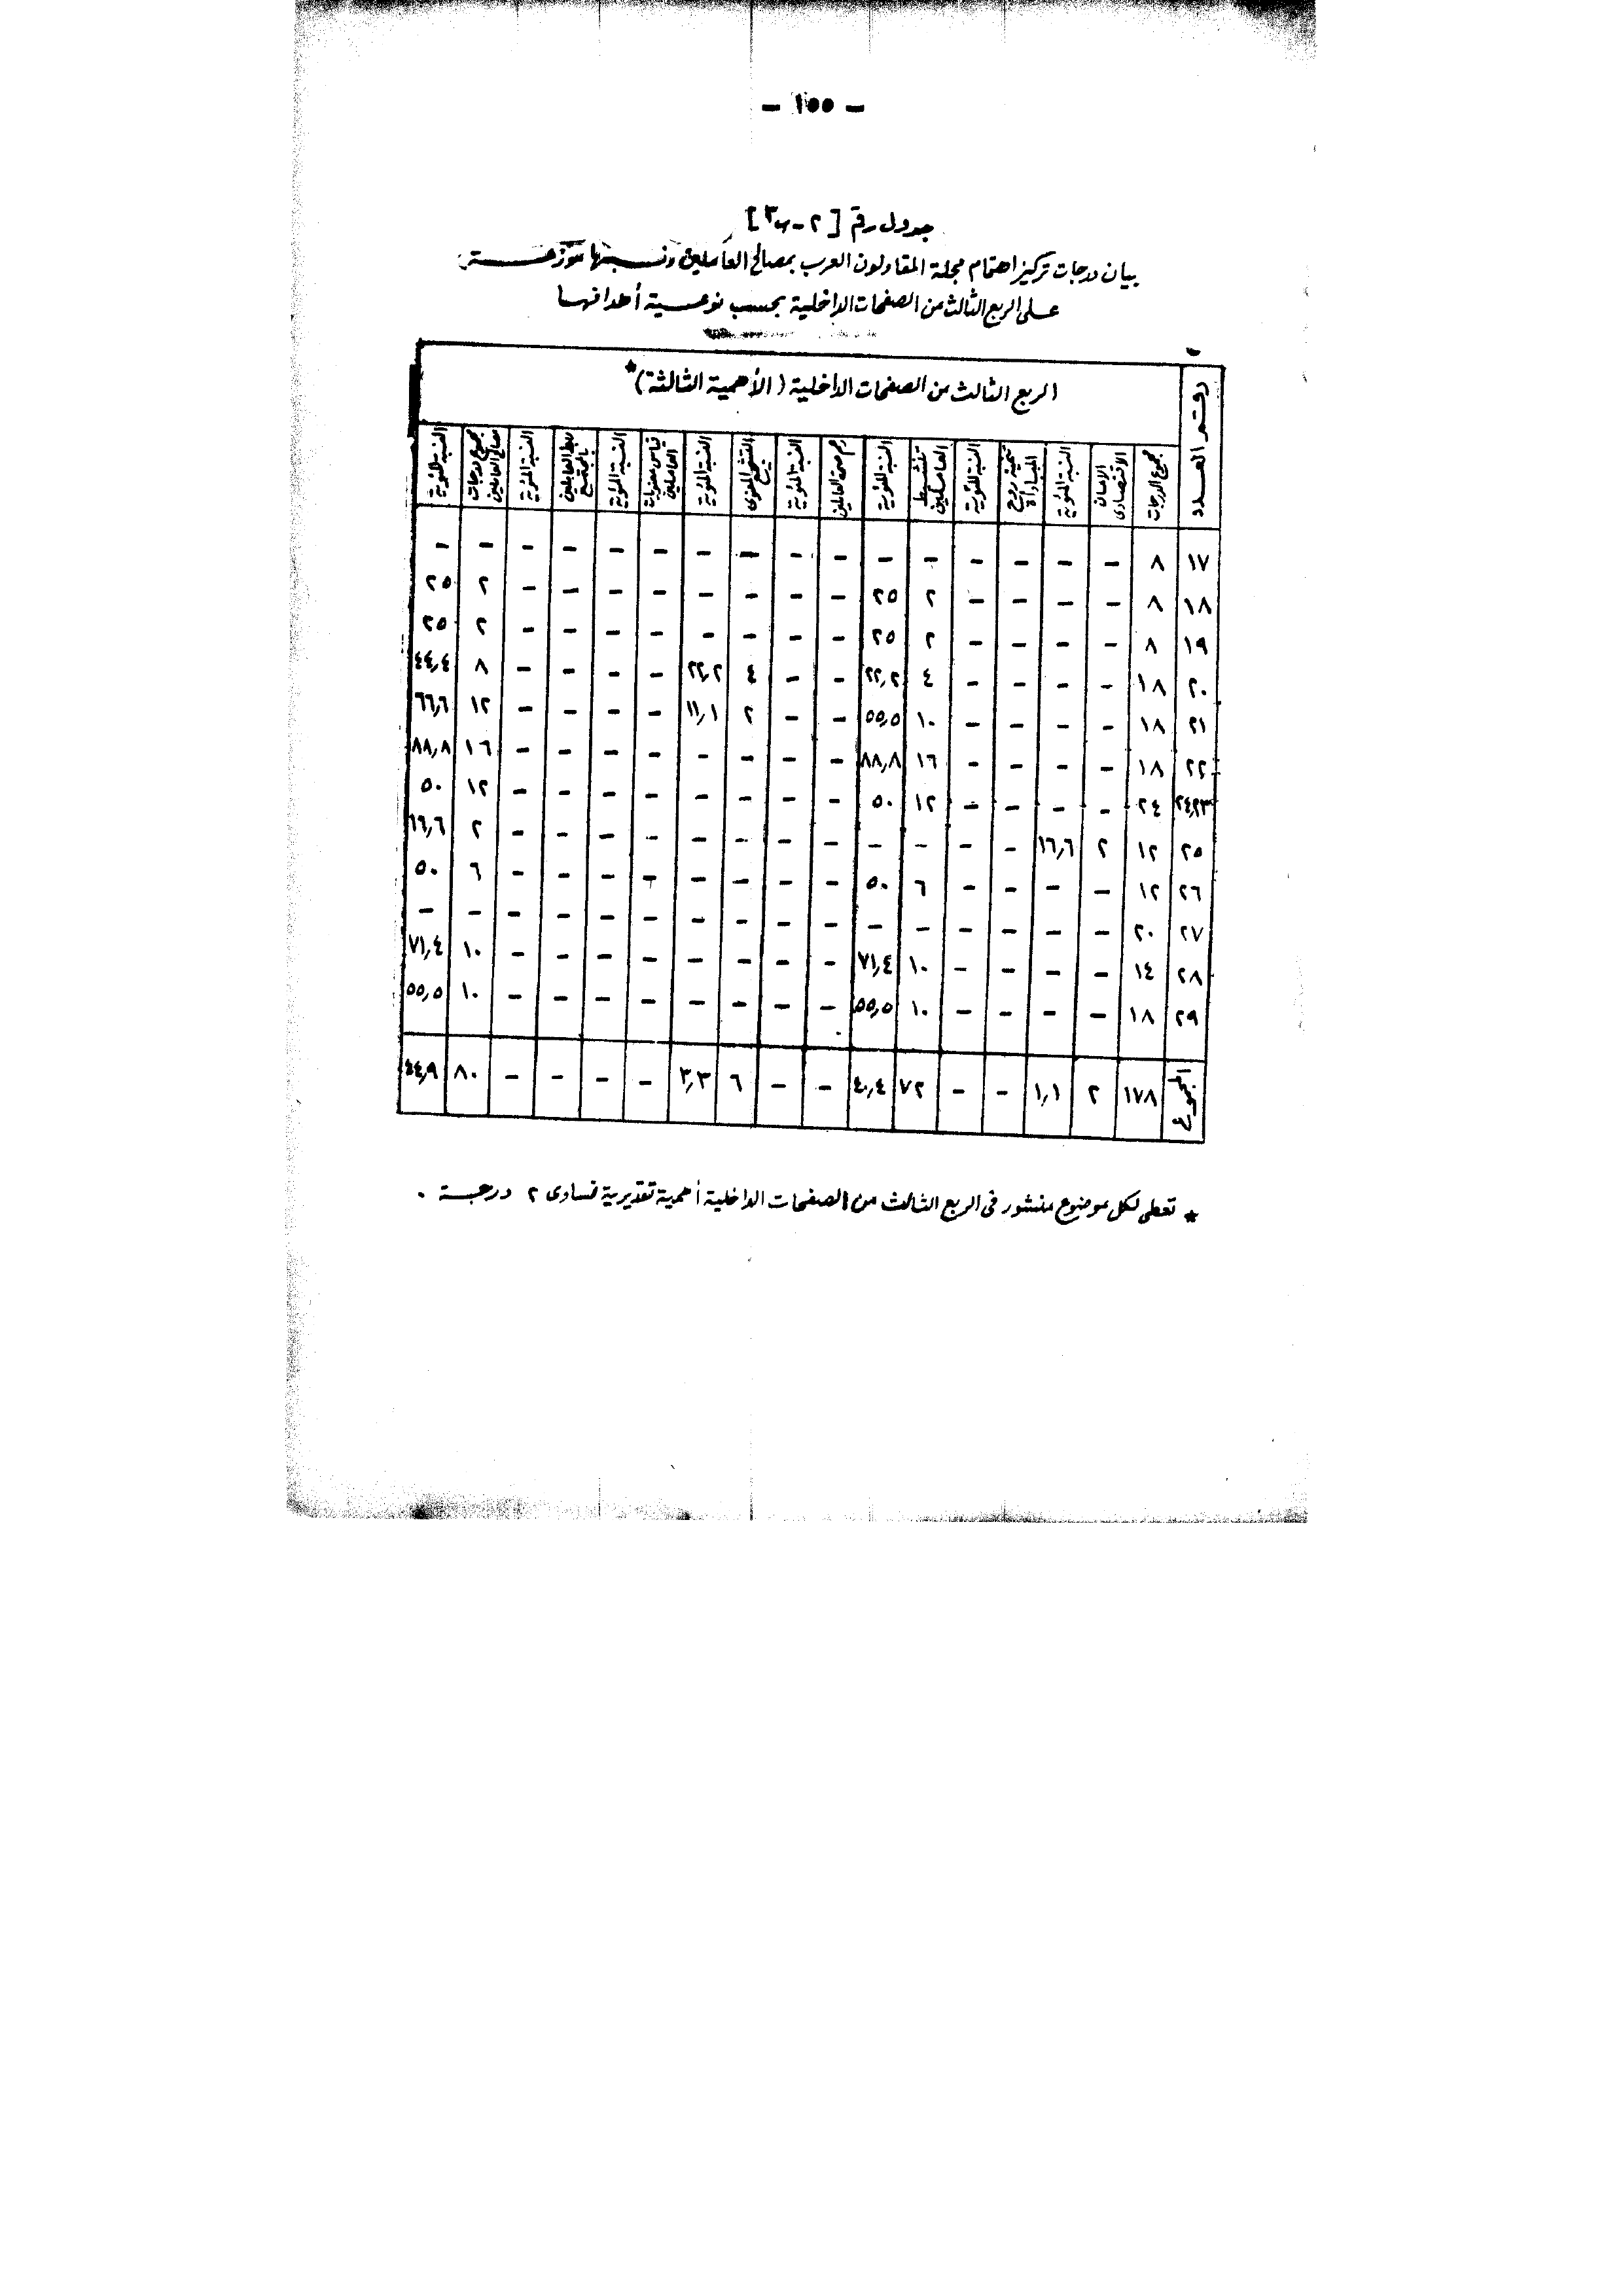 - ١٥٥ -
جدول رقم [ ٢ - ٣ ]
بيان درجات تركيز اهتمام مجلة المقاولون العرب بمصالح العاملين ونسبتها موزعة
على الربع الثالث من الصفحات الداخلية بحسب نوعية أهدافها
رقم العدد الربع الثالث من الصفحات الداخلية ( الأهمية الثالثة ) *
مجموع الدرجات الأمان الاقتصادى النسبة المئوية تنمية روح المبادأة النسبة المئوية تنشيط العاملين النسبة المئوية دعم صحة العاملين النسبة المئوية التشجيع المعنوى النسبة المئوية قياس معنويات العاملين النسبة المئوية ربط العاملين بالمجتمع النسبة المئوية مجموع درجات مصالح العاملين النسبة المئوية
١٧ ٨ - - - - - - - - - - - - - - - -
١٨ ٨ - - - - ٢ ٢٥ - - - - - - - - ٢ ٢٥
١٩ ٨ - - - - ٢ ٢٥ - - - - - - - - ٢ ٢٥
٢٠ ١٨ - - - - ٤ ٢٢,٢ - - ٤ ٢٢,٢ - - - - ٨ ٤٤,٤
٢١ ١٨ - - - - ١٠ ٥٥,٥ - - ٢ ١١,١ - - - - ١٢ ٦٦,٦
٢٢ ١٨ - - - - ١٦ ٨٨,٨ - - - - - - - - ١٦ ٨٨,٨
٢٤,٢٣ ٢٤ - - - - ١٢ ٥٠ - - - - - - - - ١٢ ٥٠
٢٥ ١٢ ٢ ١٦,٦ - - - - - - - - - - - - ٢ ١٦,٦
٢٦ ١٢ - - - - ٦ ٥٠ - - - - - - - - ٦ ٥٠
٢٧ ٢٠ - - - - - - - - - - - - - - - -
٢٨ ١٤ - - - - ١٠ ٧١,٤ - - - - - - - - ١٠ ٧١,٤
٢٩ ١٨ - - - - ١٠ ٥٥,٥ - - - - - - - - ١٠ ٥٥,٥
المجموع ١٧٨ ٢ ١,١ - - ٧٢ ٤٠,٤ - - ٦ ٣,٣ - - - - ٨٠ ٤٤,٩
* تعطى لكل موضوع منشور فى الربع الثالث من الصفحات الداخلية أهمية تقديرية تساوى ٢ درجة .